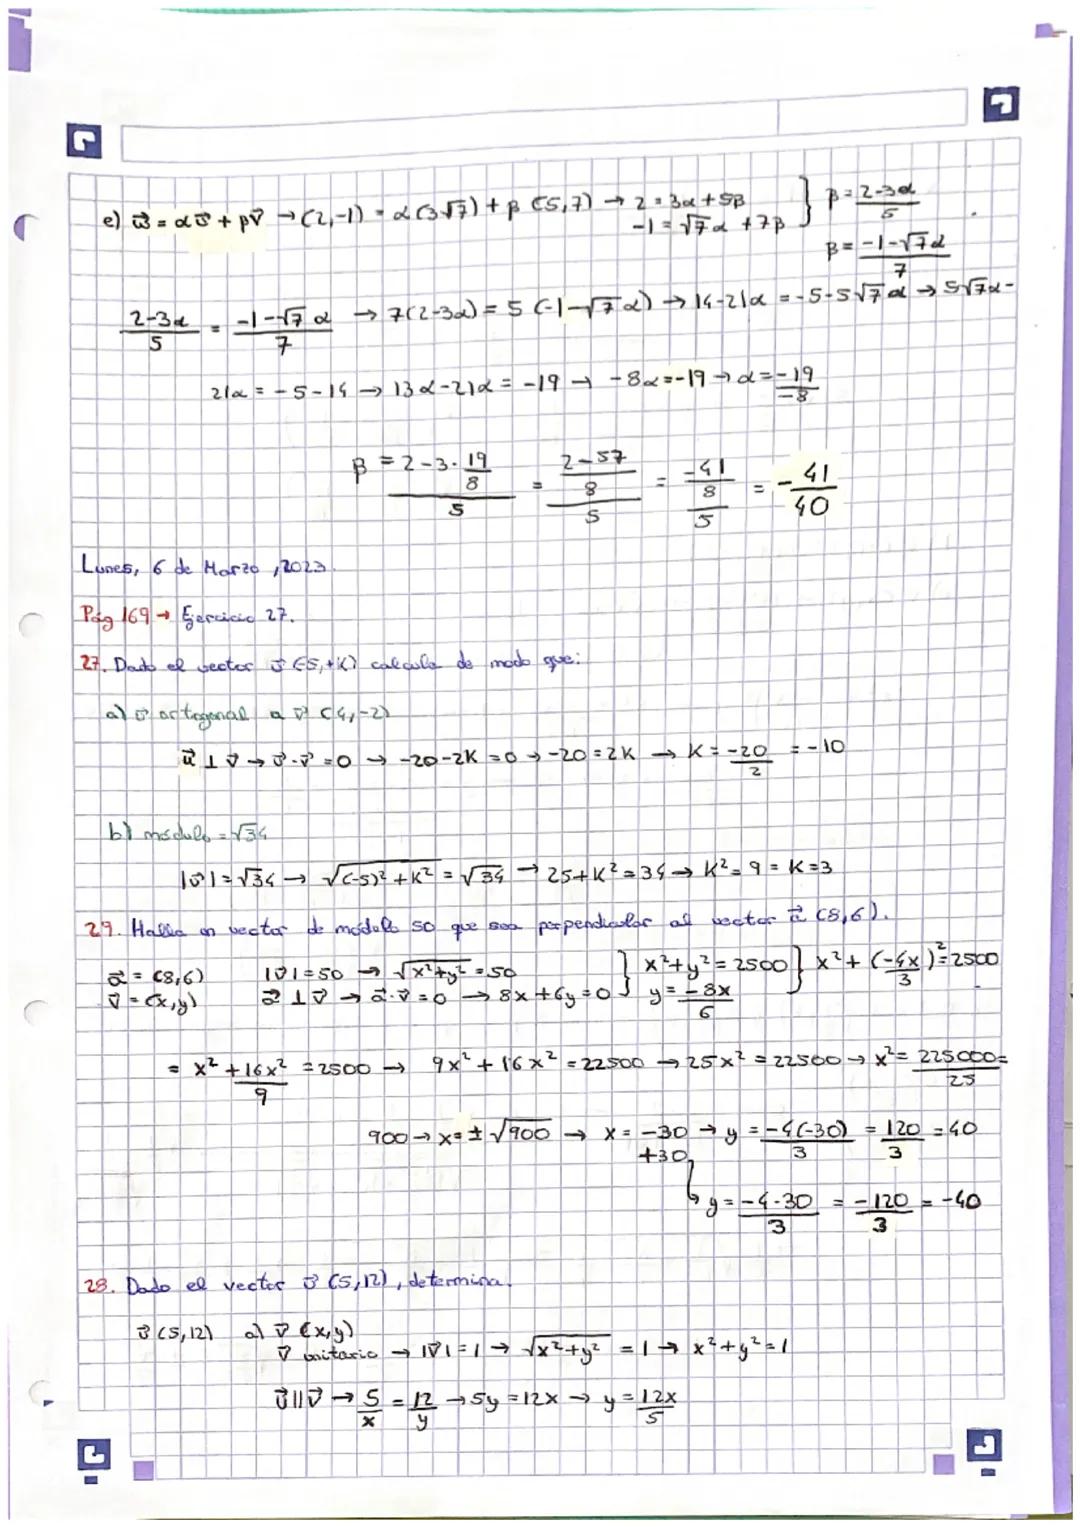 e) w⃗ = αu⃗ + βv⃗ → (2,-1) = α(3√7) + β (5,7) → 2 = 3α + 5β } β = 2-3α/5
-1 = √7α + 7β β = -1-√7α/7
2-3α/5 = -1-√7α/7 → 7(2-3α) = 5(-1-√7α) → 14-21α = -5-5√7α → 5√7α -
21α = -5-14 → 13α-21α = -19 → -8α=-19 → α = -19/-8
β = 2-3·19/8 / 5 = 2-57/8 / 5 = -41/8 / 5 = -41/40
Lunes, 6 de Marzo, 2023.
Pág 169 → Ejercicio 27.
27. Dado el vector u⃗ (-5,+K) calcula de modo que:
a) u⃗ ortogonal a v⃗ (4,-2)
u⃗ ⊥ v⃗ → u⃗·v⃗ = 0 → -20-2K = 0 → -20 = 2K → K = -20/2 = -10
b) módulo = √34
|u⃗| = √34 → √(-5)² + K² = √34 → 25+K² = 34 → K² = 9 = K=3
29. Halla un vector de módulo 50 que sea perpendicular al vector u⃗ (8,6).
u⃗ = (8,6) |v⃗| = 50 → √x²+y² = 50 } x²+y² = 2500 } x² + (-4x/3)² = 2500
v⃗ = (x,y) u⃗ ⊥ v⃗ → u⃗·v⃗ = 0 → 8x + 6y = 0 y = -8x/6
= x² + 16x²/9 = 2500 → 9x² + 16x² = 22500 → 25x² = 22500 → x² = 225000/25 =
900 → x = ± √900 → x = -30 → y = -4(-30)/3 = 120/3 = 40
+30
y = -4·30/3 = -120/3 = -40
28. Dado el vector u⃗ (5,12), determina.
u⃗ (5,12) a) v⃗ (x,y)
v⃗ unitario → |v⃗| = 1 → √x²+y² = 1 → x²+y² = 1
u⃗ || v⃗ → 5/x = 12/y → 5y = 12x → y = 12x/5